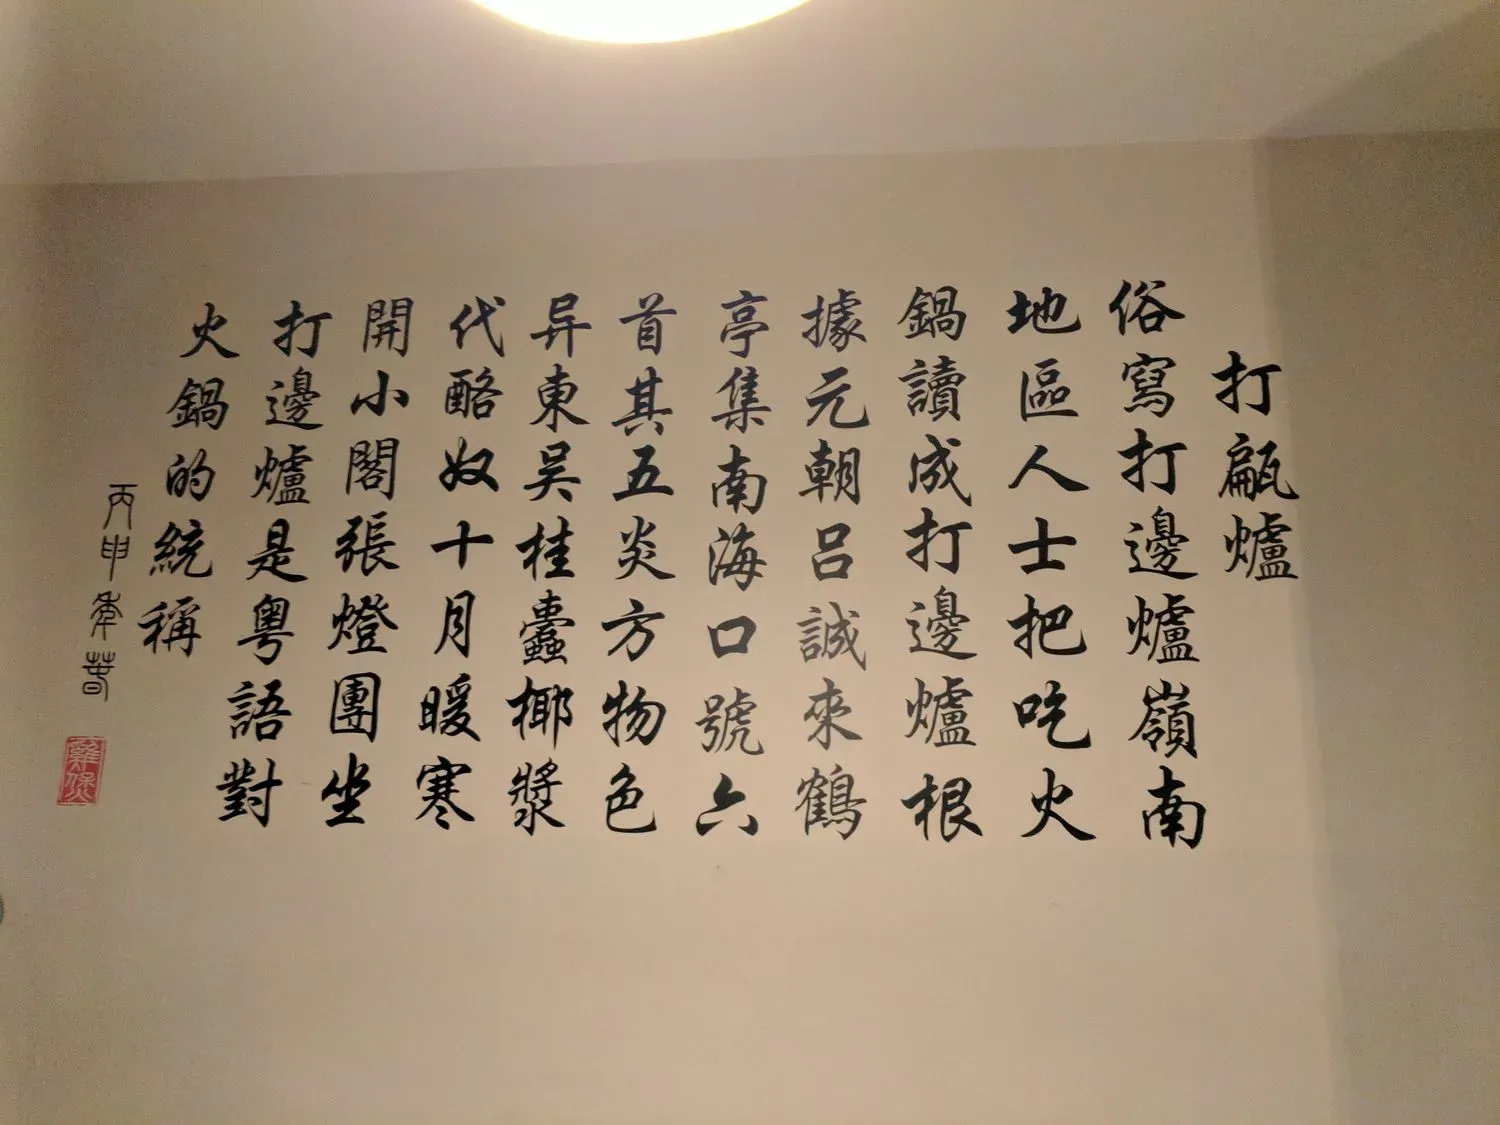 打甂爐
俗寫打邊爐嶺南
地區人士把吃火
鍋讀成打邊爐根
據元朝呂誠來鶴
亭集南海口號六
首其五炎方物色
异東吴桂蠹椰漿
代酪奴十月暖寒
開小閣張燈團坐
打邊爐是粵語對
火鍋的統稱
丙申年春